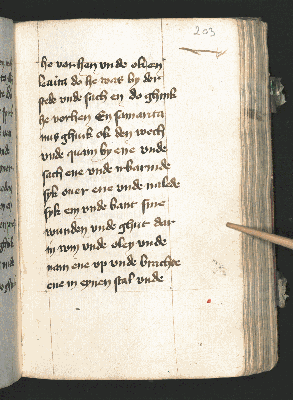 203
he vorhen vnde ok en
leuita do he was by der
stede vnde sach en do ghink
he vorhen En samarita
nus ghink ok den wech
vnde quam by ene vnde
sach ene vnde vbarmde
syk ouer ene vnde nalede
syk em vnde bant sine
wunden vnde ghut dar
in wyn vnde oley vnde
nam ene vp vnde brachte
ene in eynen stal vnde